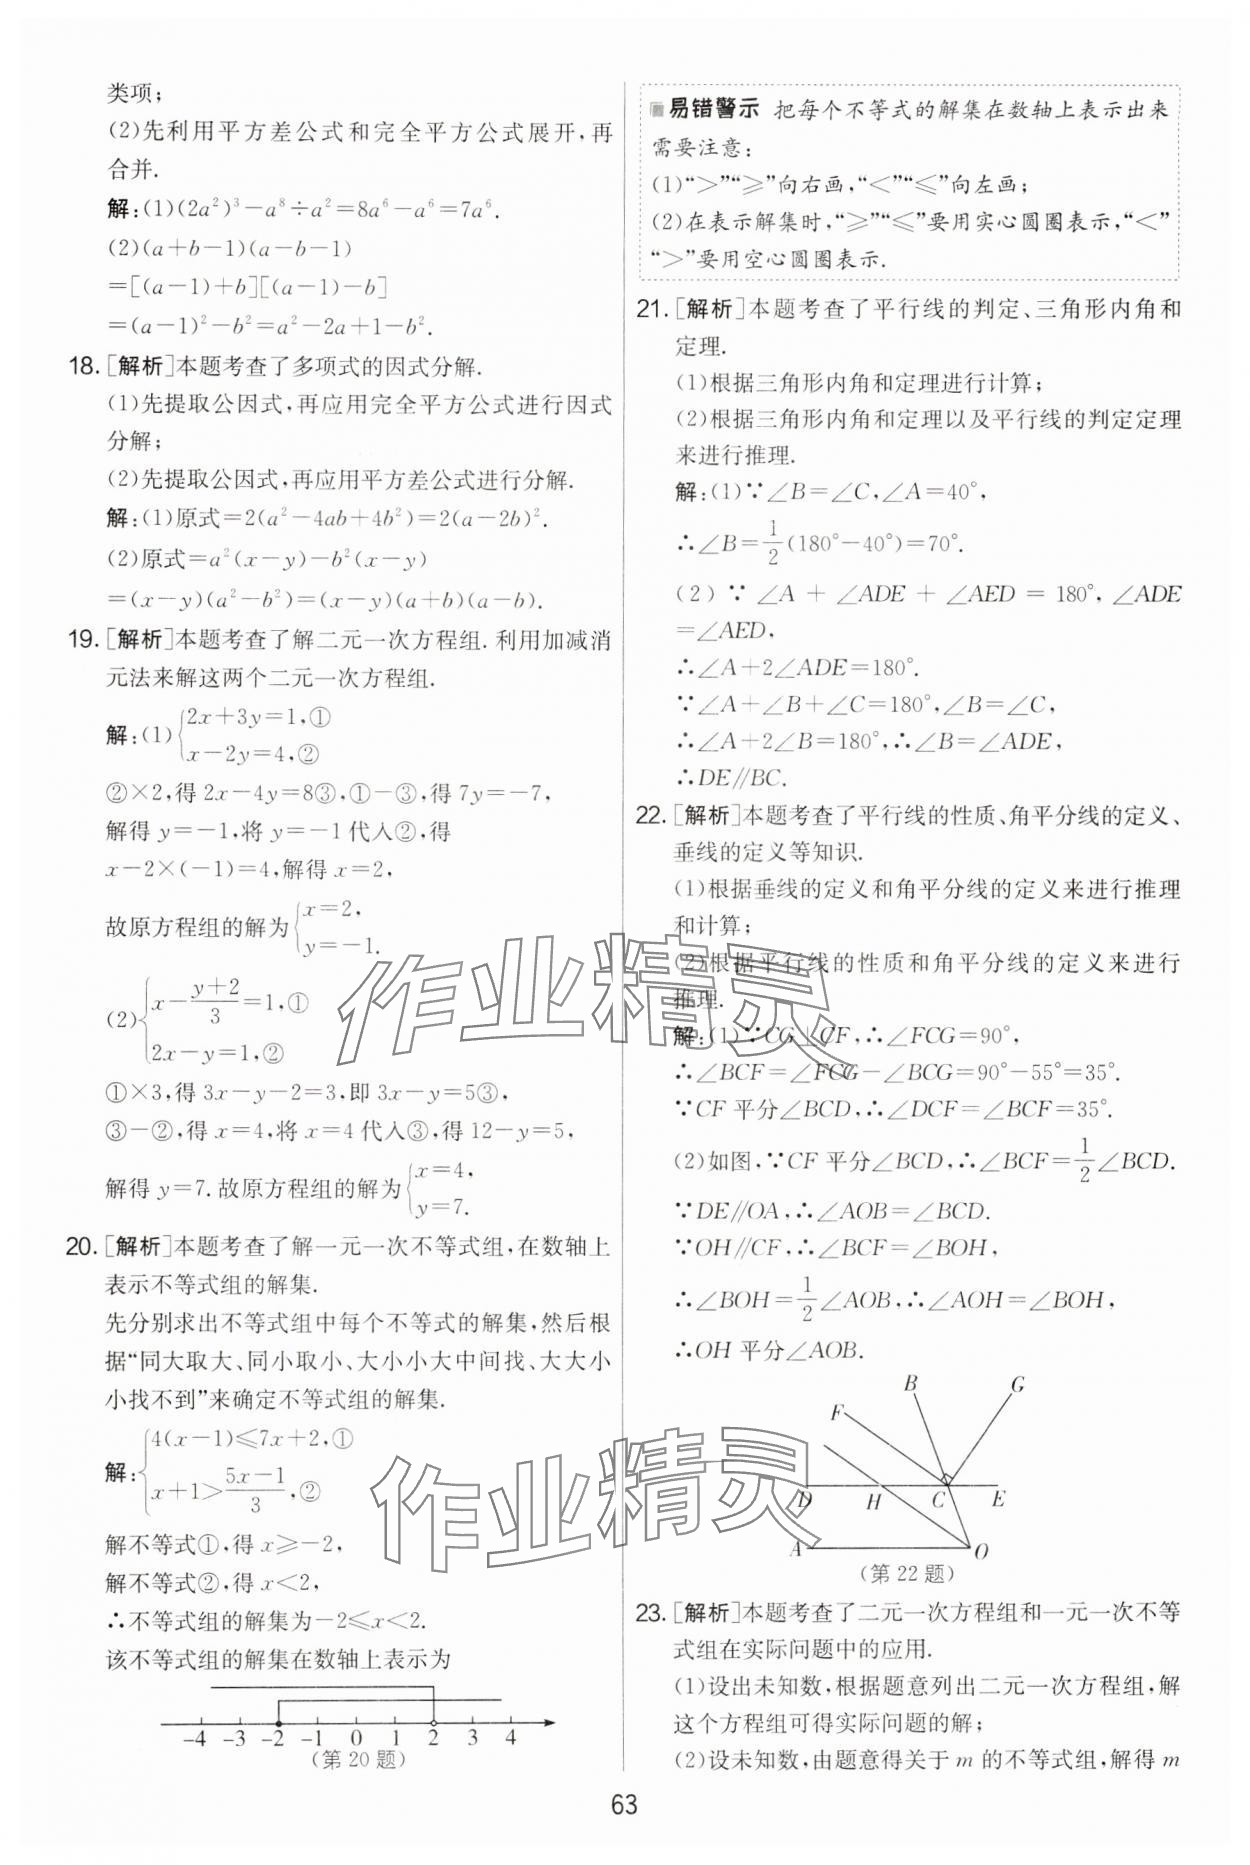 类项;
(2)先利用平方差公式和完全平方公式展开,再
合并.
解:(1)(2a²)³-a⁸÷a²=8a⁶-a⁶=7a⁶.
(2)(a+b-1)(a-b-1)
=[(a-1)+b][(a-1)-b]
=(a-1)²-b²=a²-2a+1-b².
18. [解析]本题考查了多项式的因式分解.
(1)先提取公因式,再应用完全平方公式进行因式
分解;
(2)先提取公因式,再应用平方差公式进行分解.
解:(1)原式=2(a²-4ab+4b²)=2(a-2b)².
(2)原式=a²(x-y)-b²(x-y)
=(x-y)(a²-b²)=(x-y)(a+b)(a-b).
19. [解析]本题考查了解二元一次方程组. 利用加减消
元法来解这两个二元一次方程组.
解:(1){2x+3y=1,①
x-2y=4,②
②×2,得 2x-4y=8③,①-③,得 7y=-7,
解得 y=-1,将 y=-1代入②,得
x-2×(-1)=4,解得 x=2,
故原方程组的解为{x=2,
y=-1.
(2){x-(y+2)/3=1,①
2x-y=1,②
①×3,得 3x-y-2=3,即 3x-y=5③,
③-②,得 x=4,将 x=4代入③,得 12-y=5,
解得 y=7. 故原方程组的解为{x=4,
y=7.
20. [解析]本题考查了解一元一次不等式组,在数轴上
表示不等式组的解集.
先分别求出不等式组中每个不等式的解集,然后根
据“同大取大、同小取小、大小小大中间找、大大小
小找不到”来确定不等式组的解集.
解:{4(x-1)≤7x+2,①
x+1>(5x-1)/3,②
解不等式①,得 x≥-2,
解不等式②,得 x<2,
∴不等式组的解集为-2≤x<2.
该不等式组的解集在数轴上表示为
-4 -3 -2 -1 0 1 2 3 4
(第 20 题)
易错警示 把每个不等式的解集在数轴上表示出来
需要注意:
(1)“>”“≥”向右画,“<”“≤”向左画;
(2)在表示解集时,“≥”“≤”要用实心圆圈表示,“<”
“>”要用空心圆圈表示.
21. [解析]本题考查了平行线的判定、三角形内角和
定理.
(1)根据三角形内角和定理进行计算;
(2)根据三角形内角和定理以及平行线的判定定理
来进行推理.
解:(1)∵∠B=∠C,∠A=40°,
∴∠B=1/2(180°-40°)=70°.
(2)∵ ∠A + ∠ADE + ∠AED = 180°, ∠ADE
=∠AED,
∴∠A+2∠ADE=180°.
∵∠A+∠B+∠C=180°,∠B=∠C,
∴∠A+2∠B=180°,∴∠B=∠ADE,
∴DE∥BC.
22. [解析]本题考查了平行线的性质、角平分线的定义、
垂线的定义等知识.
(1)根据垂线的定义和角平分线的定义来进行推理
和计算;
(2)根据平行线的性质和角平分线的定义来进行
推理.
解:(1)∵CG⊥CF,∴∠FCG=90°,
∴∠BCF=∠FCG-∠BCG=90°-55°=35°.
∵CF 平分∠BCD,∴∠DCF=∠BCF=35°.
(2)如图,∵CF 平分∠BCD,∴∠BCF=1/2∠BCD.
∵DE∥OA,∴∠AOB=∠BCD.
∵OH∥CF,∴∠BCF=∠BOH,
∴∠BOH=1/2∠AOB,∴∠AOH=∠BOH,
∴OH 平分∠AOB.
B G
F
D H C E
A O
(第 22 题)
23. [解析]本题考查了二元一次方程组和一元一次不等
式组在实际问题中的应用.
(1)设出未知数,根据题意列出二元一次方程组,解
这个方程组可得实际问题的解;
(2)设未知数,由题意得关于 m 的不等式组,解得 m
63
作业精灵
作业精灵